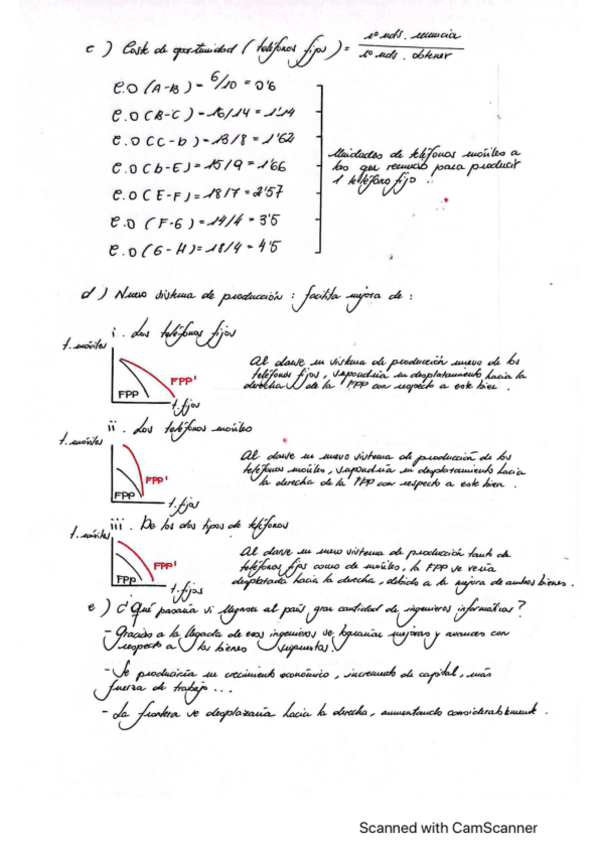 c) Coste de oportunidad (teléfonos fijos) = nº uds. renuncia / nº uds. obtener
C.O (A-B) = 6/10 = 0'6
C.O (B-C) = 16/14 = 1'14
C.O (C-D) = 13/8 = 1'62
C.O (D-E) = 15/9 = 1'66
C.O (E-F) = 18/7 = 2'57
C.O (F-G) = 14/4 = 3'5
C.O (G-H) = 18/4 = 4'5
Unidades de teléfonos móviles a
las que renuncio para producir
1 teléfono fijo.
d) Nuevo sistema de producción: facilita mejora de:
i. Los teléfonos fijos
t. móviles
FPP
FPP'
t. fijos
Al darse un sistema de producción nuevo de los
teléfonos fijos, supondría un desplazamiento hacia la
derecha de la FPP con respecto a este bien.
ii. Los teléfonos móviles
t. móviles
FPP
FPP'
t. fijos
Al darse un nuevo sistema de producción de los
teléfonos móviles, supondría un desplazamiento hacia
la derecha de la FPP con respecto a este bien.
iii. De los dos tipos de teléfonos
t. móviles
FPP
FPP'
t. fijos
Al darse un nuevo sistema de producción tanto de
teléfonos fijos como de móviles, la FPP se vería
desplazada hacia la derecha, debido a la mejora de ambos bienes.
e) ¿Qué pasaría si llegase al país gran cantidad de ingenieros informáticos?
- Gracias a la llegada de esos ingenieros se lograrían mejoras y avances con
respecto a los bienes supuestos.
- Se produciría un crecimiento económico, incremento de capital, más
fuerza de trabajo...
- La frontera se desplazaría hacia la derecha, aumentando considerablemente.
Scanned with CamScanner